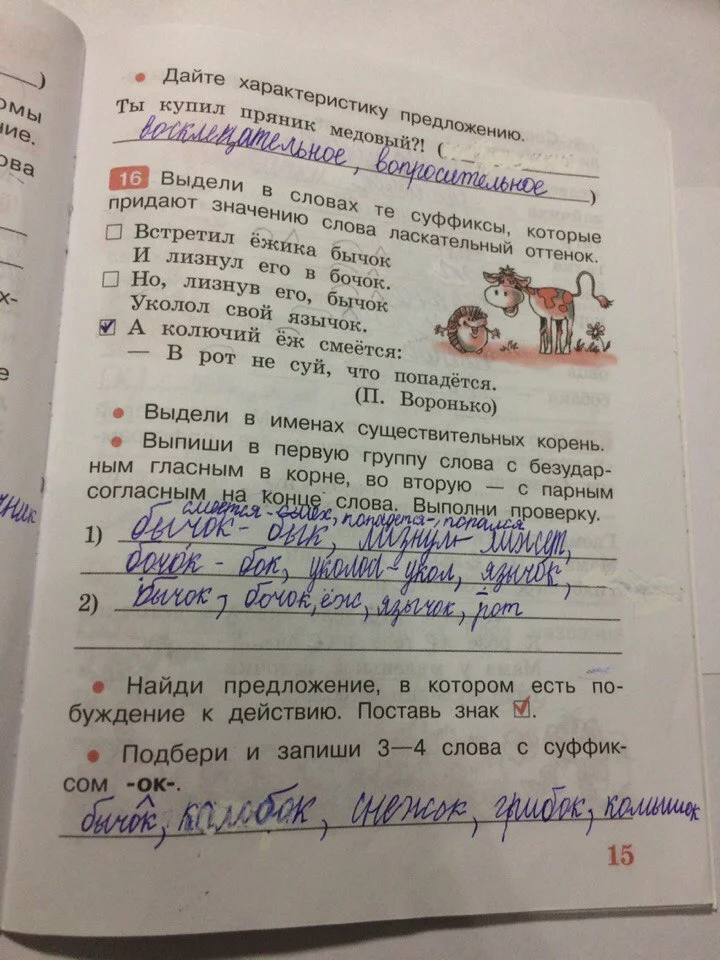 )
омы
ние.
ова
х-
е
● Дайте характеристику предложению.
Ты купил пряник медовый?! (
восклецательное, вопросительное )
16 Выдели в словах те суффиксы, которые
придают значению слова ласкательный оттенок.
Встретил ёжика бычок
И лизнул его в бочок.
Но, лизнув его, бычок
Уколол свой язычок.
А колючий ёж смеётся:
— В рот не суй, что попадётся.
(П. Воронько)
● Выдели в именах существительных корень.
● Выпиши в первую группу слова с безудар-
ным гласным в корне, во вторую — с парным
согласным на конце слова. Выполни проверку.
смеётся - смех, попадётся-, попался
1) бычок - бык, лизнул - лижет,
бочок - бок, уколол - укол, язычок,
2) бычок, бочок, ёж, язычок, рот
● Найди предложение, в котором есть по-
буждение к действию. Поставь знак ☑.
● Подбери и запиши 3—4 слова с суффик-
сом -ок-.
бычок, колобок, снежок, грибок, комышок
15